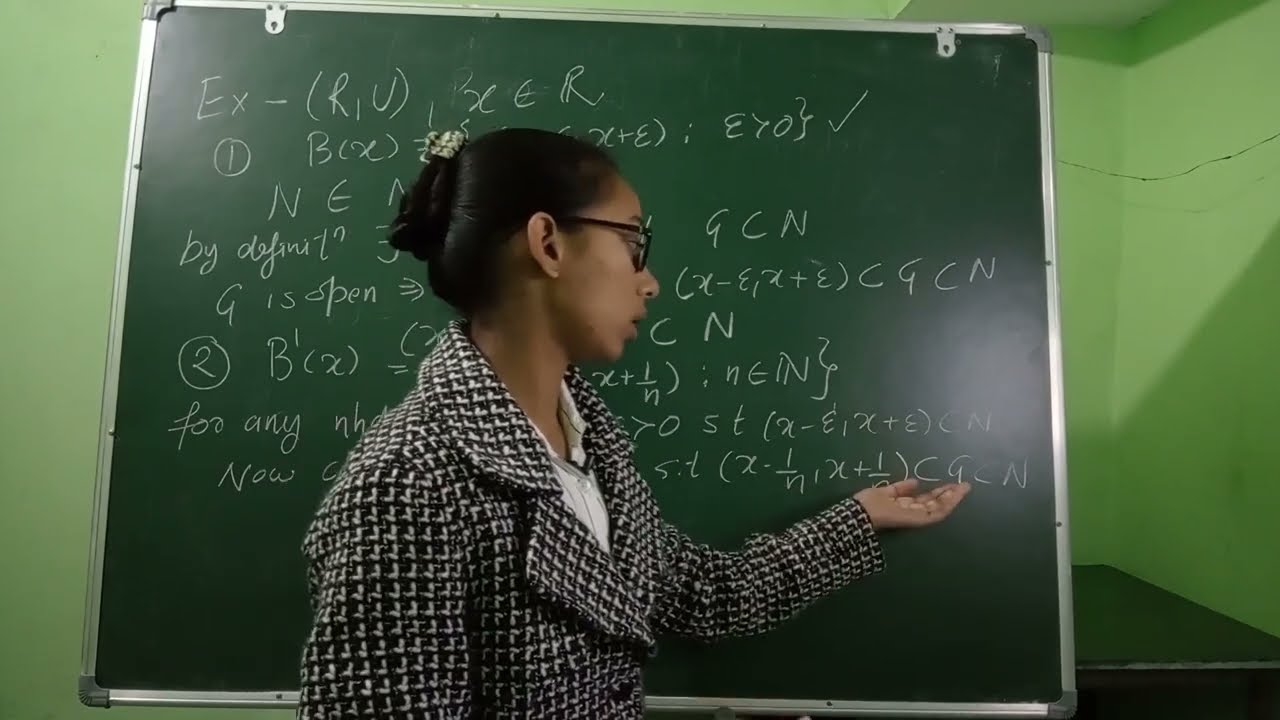 Ex - (R, U), x ∈ R
① B(x) = { x+ε) ; ε>0} ✓
N ∈ N
by definitⁿ ∃ G ⊂ N
G is open ⇒ (x-ε, x+ε) ⊂ G ⊂ N
(x ⊂ N
② B'(x) = x+1/n) ; n∈ℕ}
for any nhd >0 s t (x-ε, x+ε) ⊂ N
Now s.t (x-1/n, x+1/n) ⊂ G ⊂ N